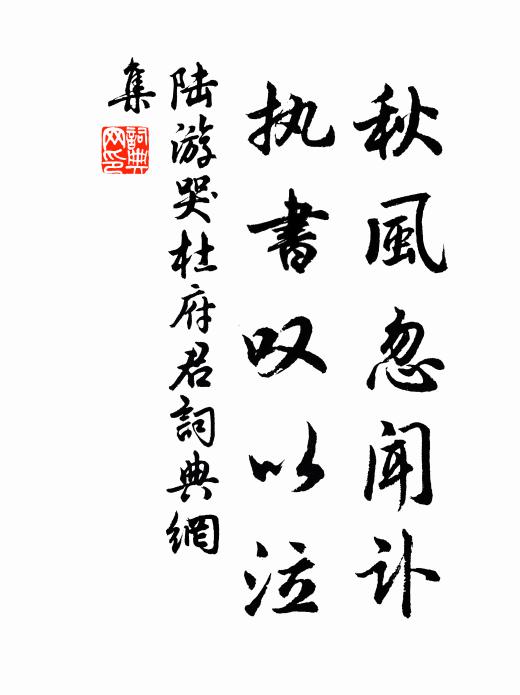 秋風忽聞讣
执書叹以泣
陆游哭杜府君詞典網
集
詞典
网印